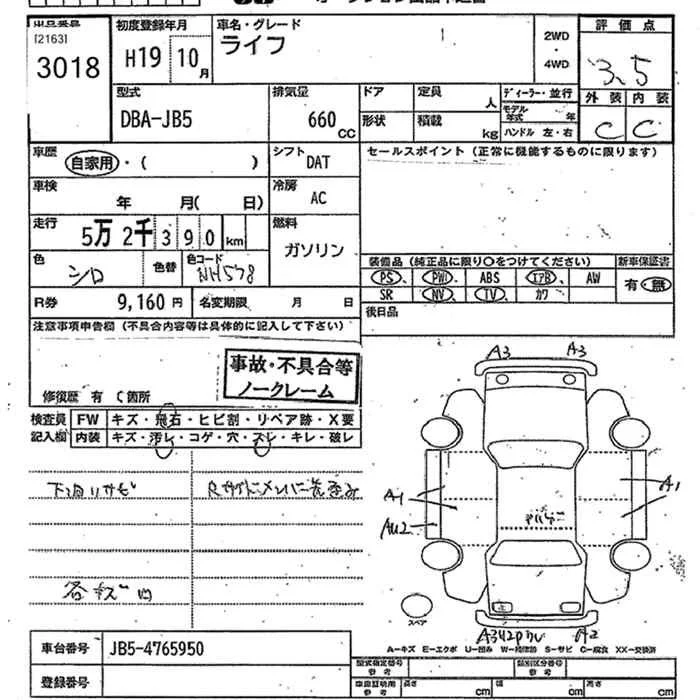 [2163]
3018
初度登録年月
H19 10月
車名・グレード
ライフ
2WD
・
4WD
評価点
3.5
外装 内装
C C
型式
DBA-JB5
排気量
660 CC
ドア
定員
人
形状
積載
kg
ディーラー・並行
モデル年式 年
ハンドル 左・右
車歴
自家用・( )
シフト
DAT
セールスポイント(正常に機能するものに限ります)
車検
年 月( 日)
冷房
AC
走行
5万2千390km
燃料
ガソリン
色
シロ
色替
色コード
NH578
装備品(純正品に限り○をつけてください)
新車保証書
PS、 PW、 ABS エアB、 AW
有・無
SR NV、 TV、 カワ
R券
9,160円
名変期限 月 日
後日品
注意事項申告欄(不具合内容等は具体的に記入して下さい)
事故・不具合等
ノークレーム
修復歴 有 (箇所
検査員
記入欄
FW キズ・飛石・ヒビ割・リペア跡・X要
内装 キズ・汚レ・コゲ・穴・スレ・キレ・破レ
下廻りサビ
各キズ凹
A3 A3
A1 A1
AU2
A2
スペア
A=キズ E=エクボ U=凹み W=補修跡 S=サビ C=腐食 XX=交換済
車台番号
JB5-4765950
登録番号
型式指定番号
参考
類別区分番号
参考
車庫証明用
参考
長さ cm
幅 cm
高さ cm